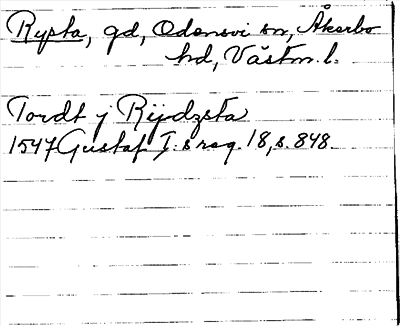 Rysta, gd, Odensvi sn, Åkerbo
hd, Västm. l.
Tordt j Rijdzsta
1547 Gustaf I:s reg. 18, s. 848